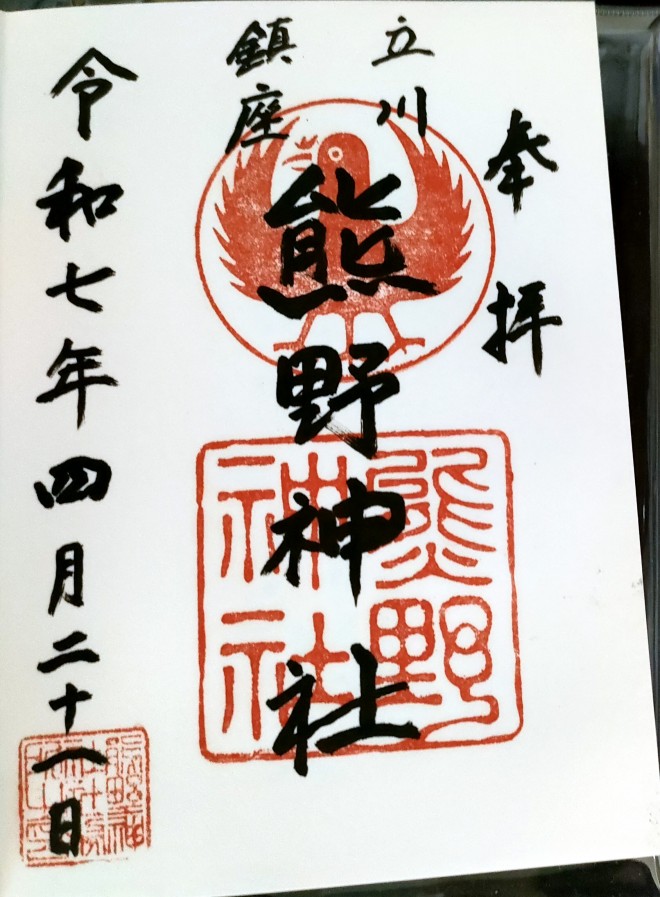 奉拝
立川
鎮座
熊野神社
熊野
神社
令和七年四月二十一日